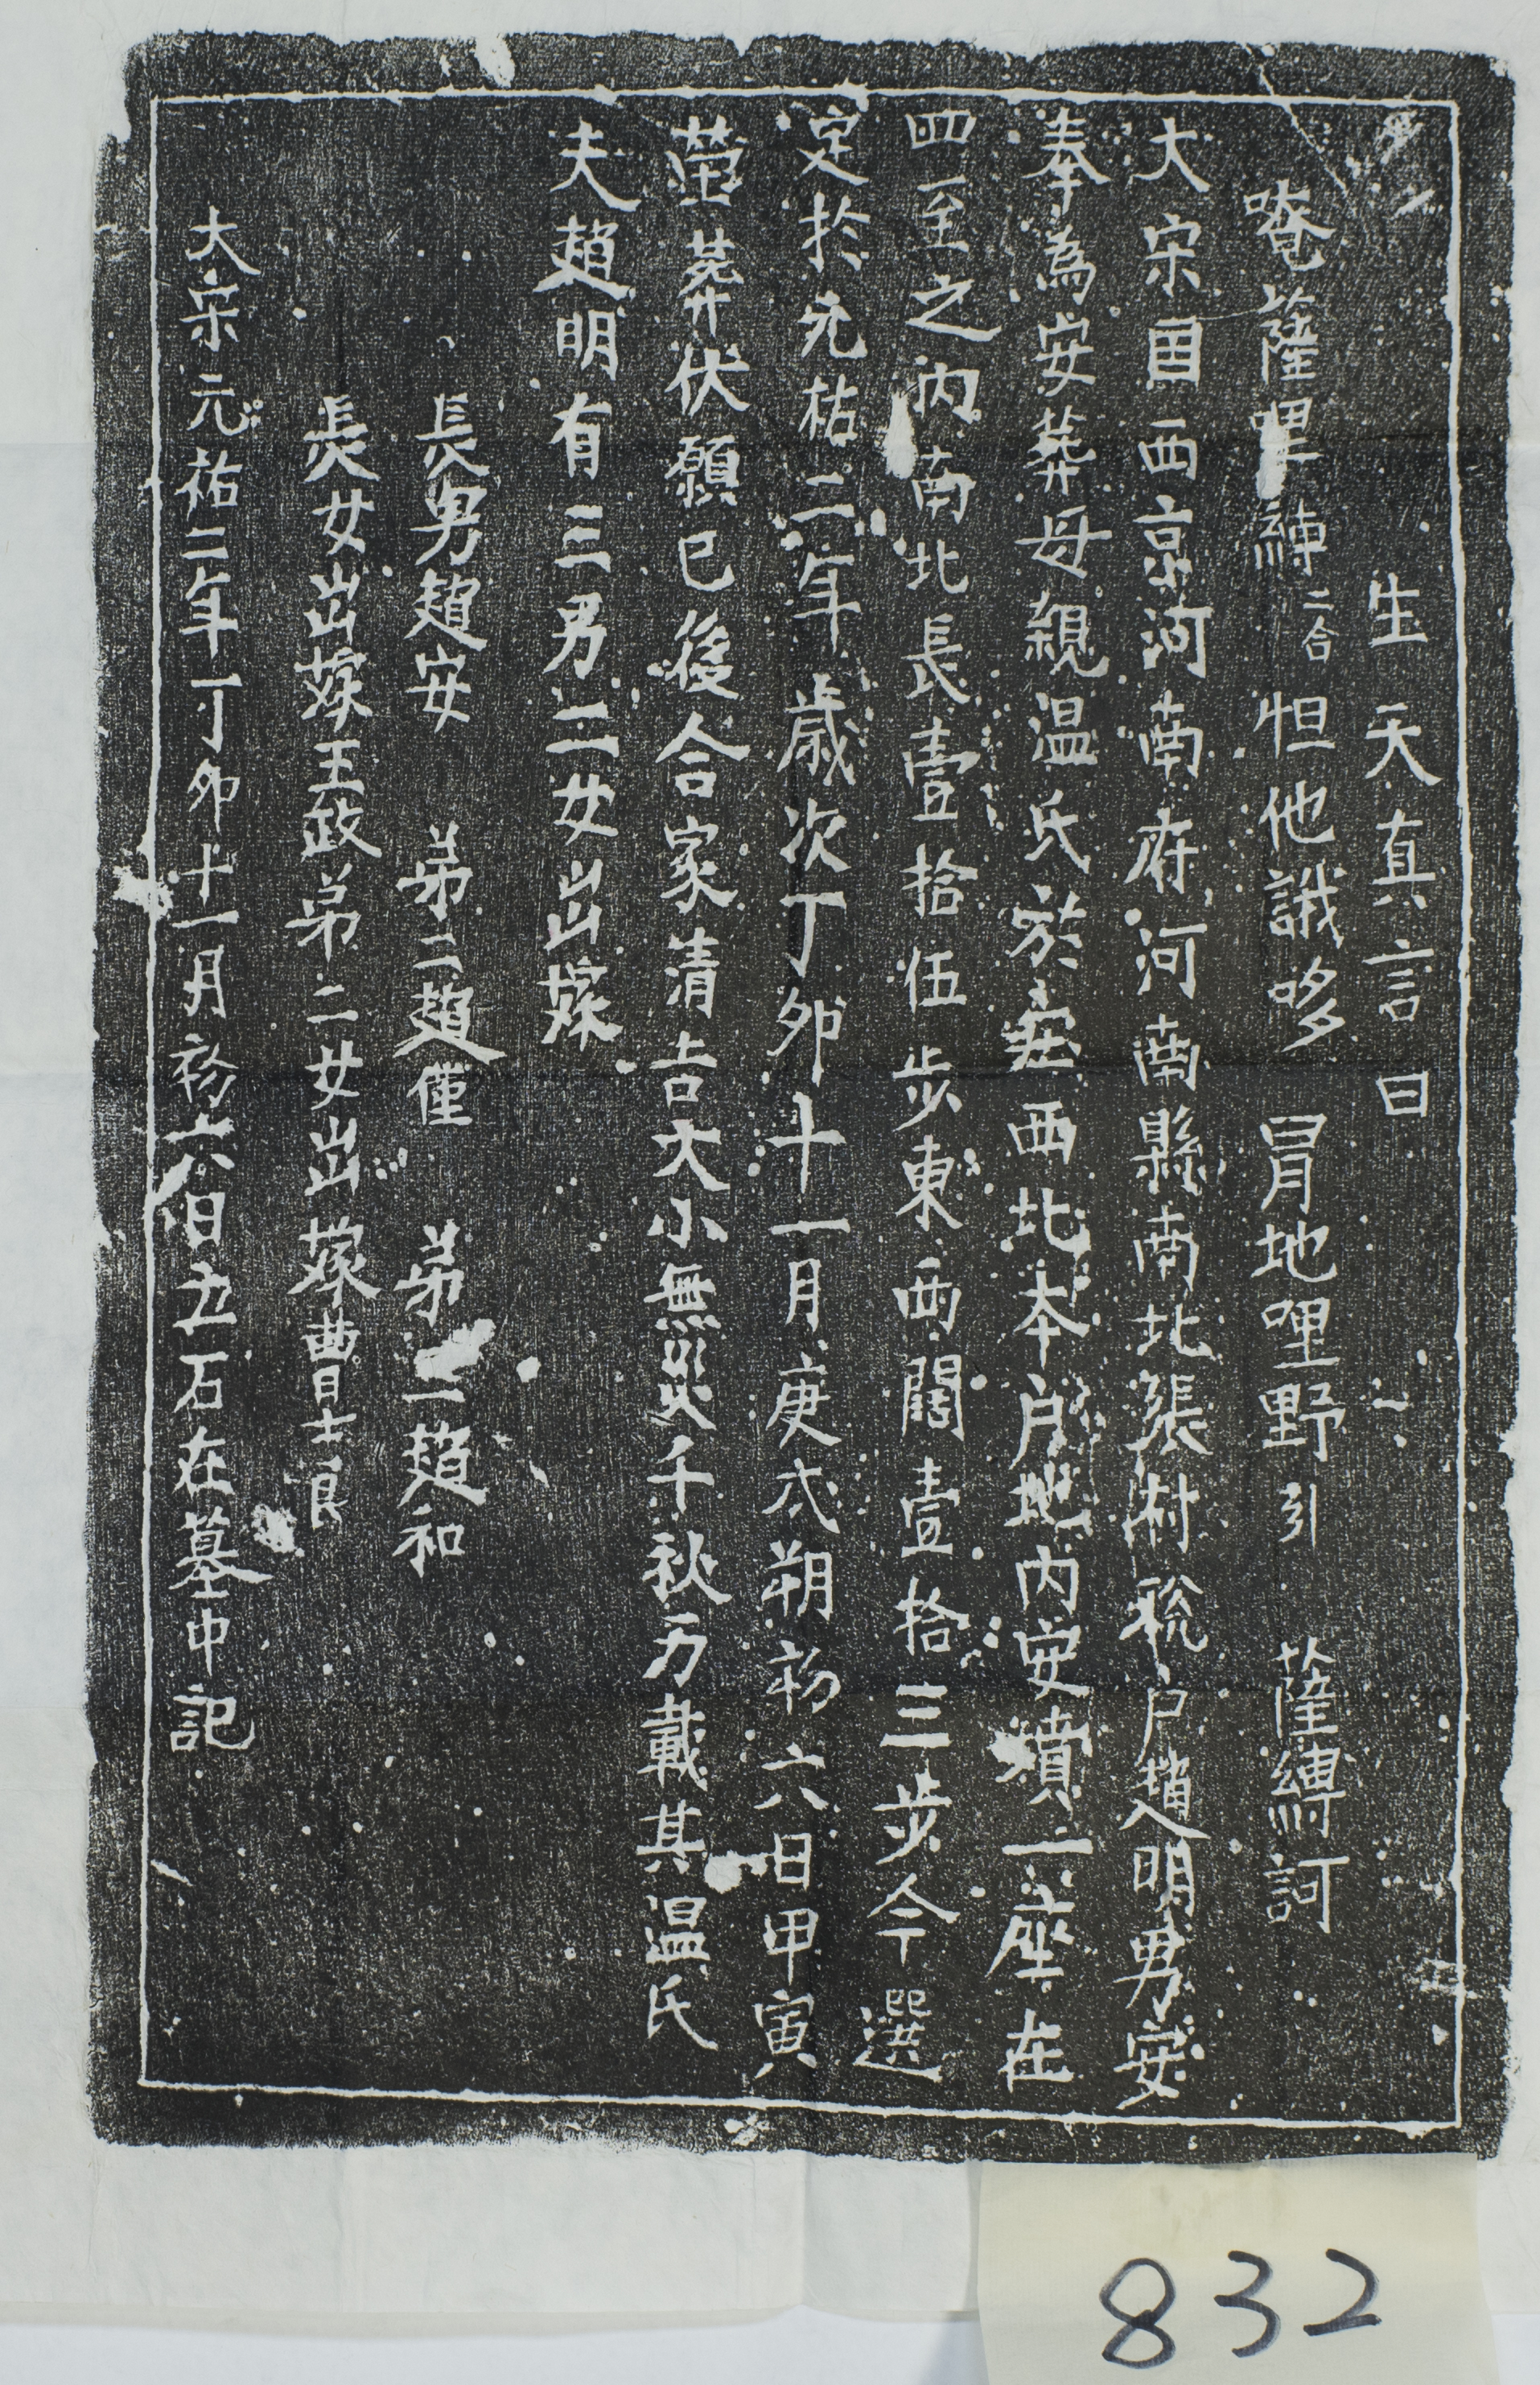 生天真言曰
唵薩哩嚩二合怛他誐哆 冐地哩野引 薩嚩訶
大宋國西京河南府河南縣南北張村稅户趙明男安
奉為安葬母親温氏於庄西北本户地內安墳一座在
四至之內南北長壹拾伍步東西闊壹拾三步今選
定扵元祐二年歲次丁卯十一月庚戌朔初六日甲寅
塋葬伏願已後合家清吉大小無災千秋万載其温氏
夫趙明有三男二女出嫁
長男趙安 弟二趙僅 弟 趙和
長女出嫁王政弟二女出嫁曹士良
大宋元祐二年丁卯十一月初六日立石在墓中記
832